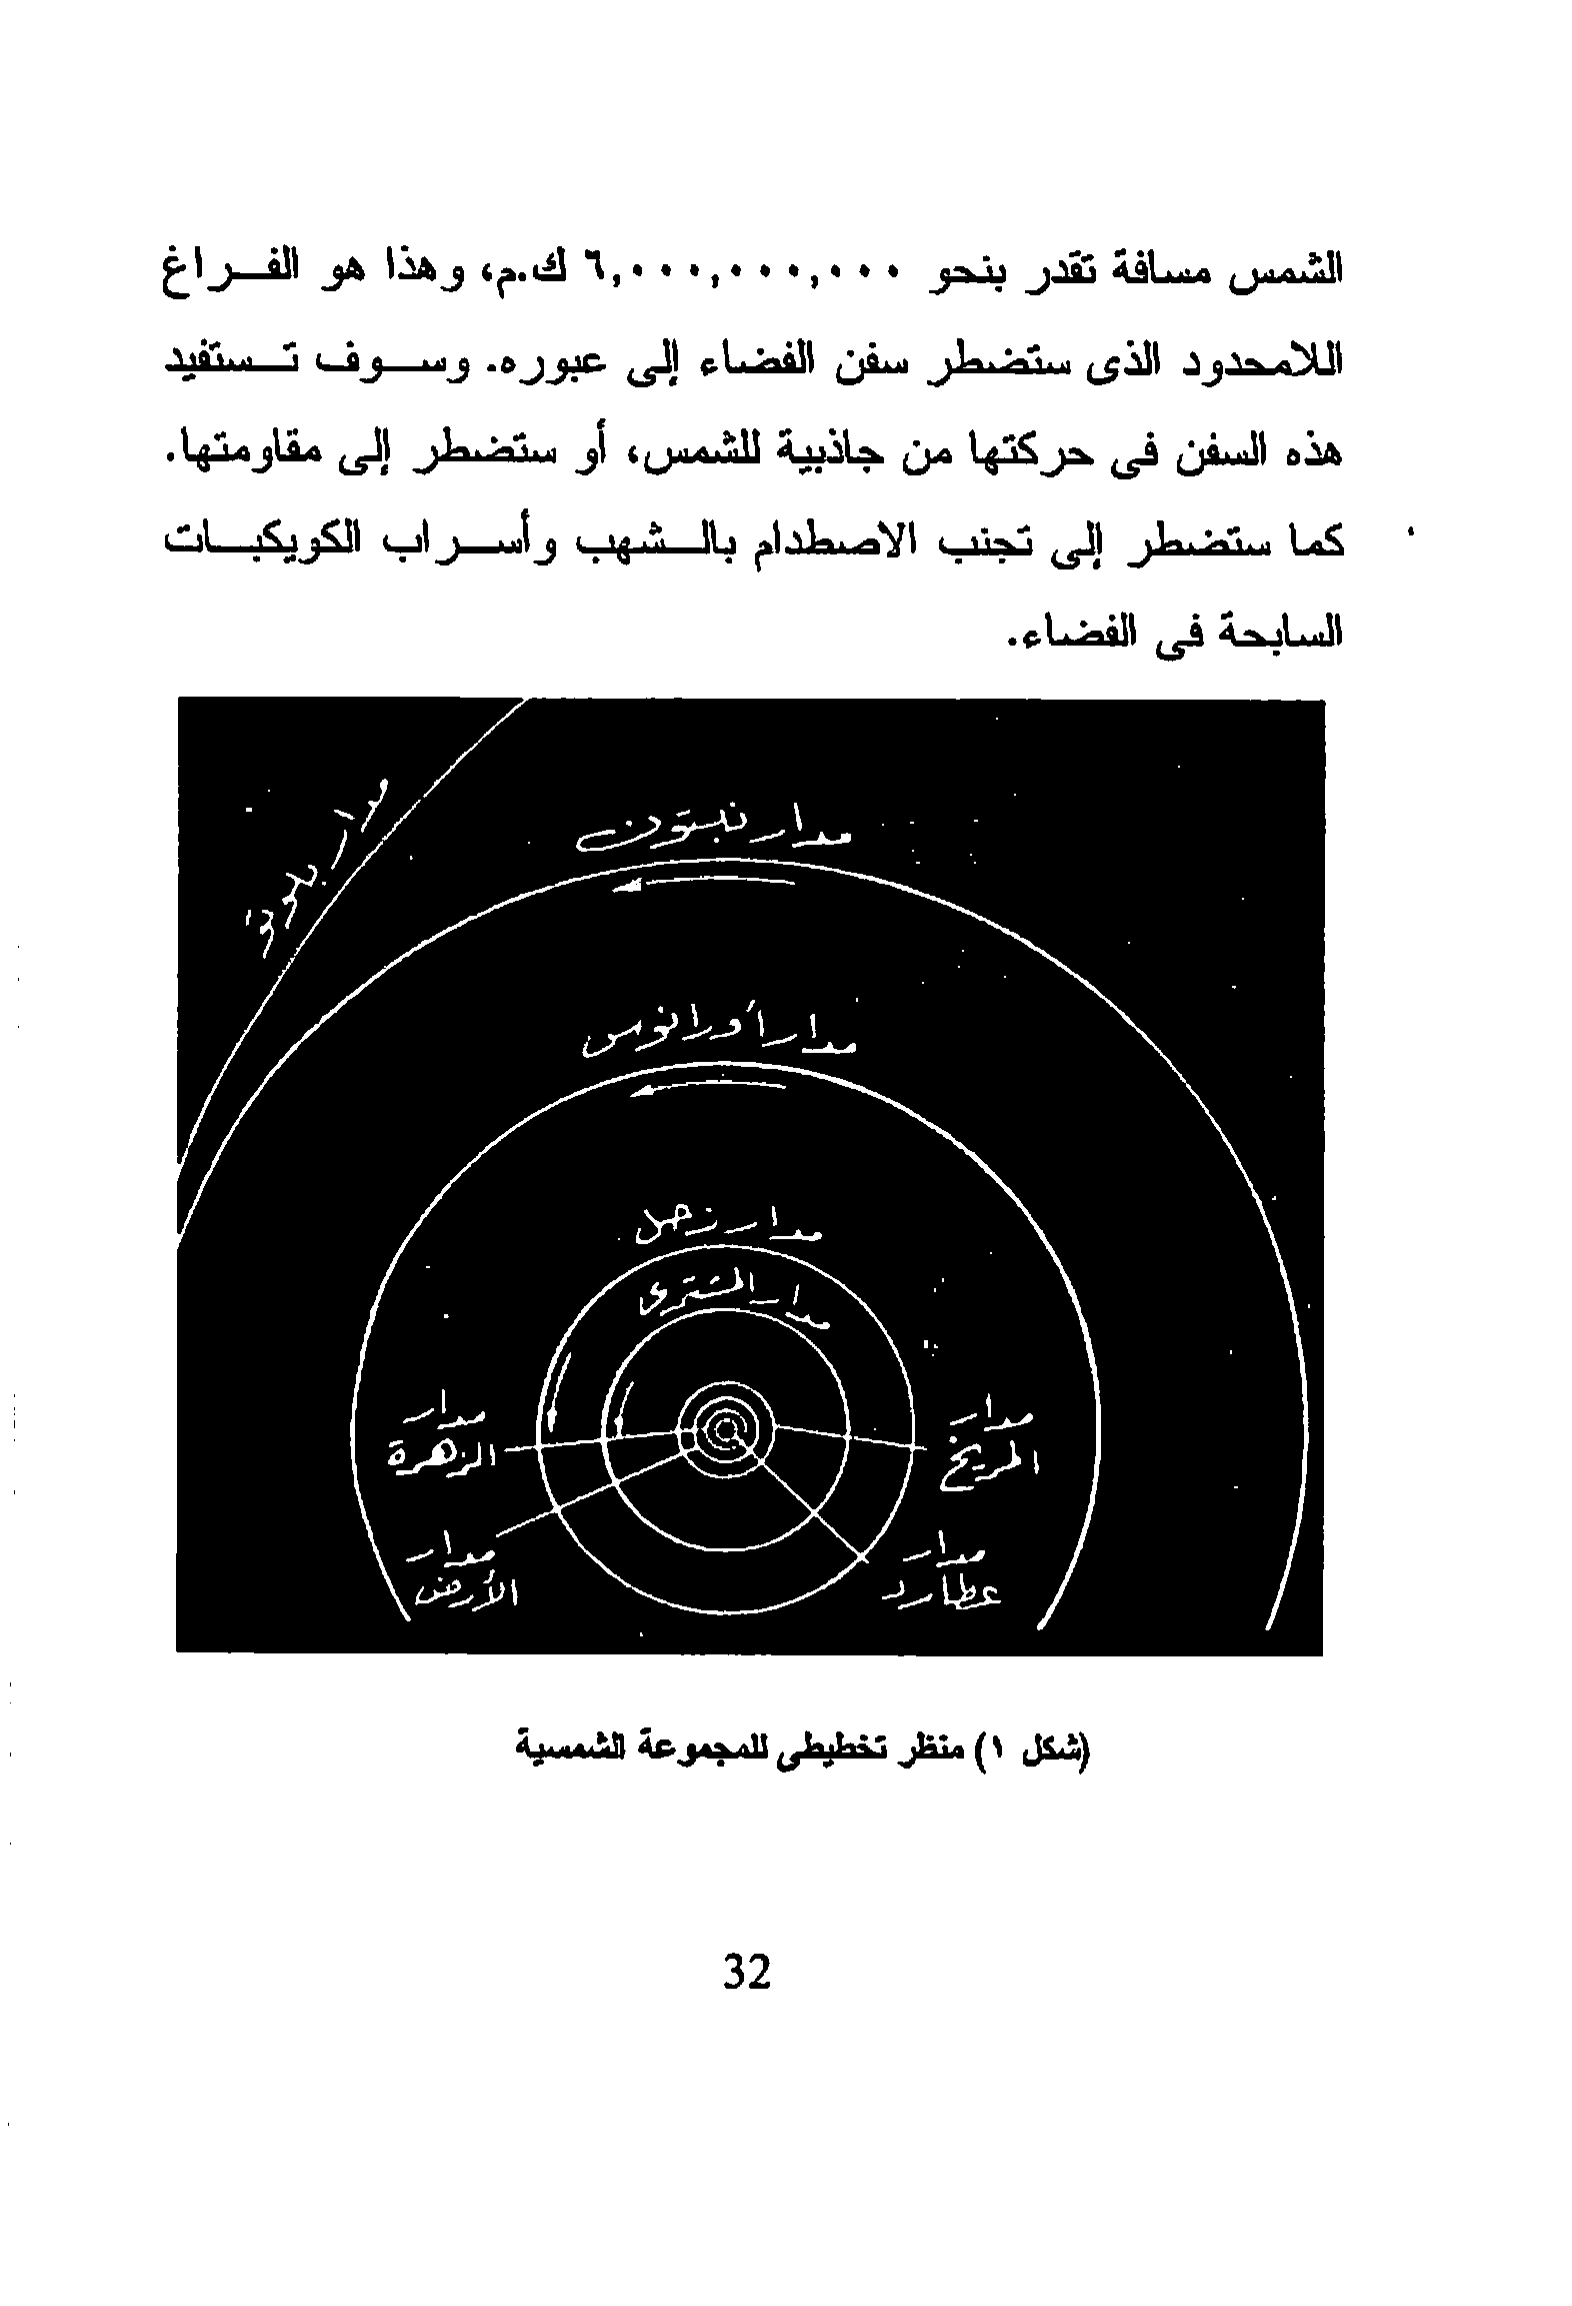 الشمس مسافة تقدر بنحو ٦,٠٠٠,٠٠٠,٠٠٠ ك.م، وهذا هو الفراغ
اللامحدود الذى ستضطر سفن الفضاء إلى عبوره. وسوف تستفيد
هذه السفن فى حركتها من جاذبية للشمس، أو ستضطر إلى مقاومتها.
كما ستضطر إلى تجنب الاصطدام بالشهب وأسراب الكويكبات
السابحة فى الفضاء.
مدار بلوتو
مدار نبتون
مدار أورانوس
مدار زحل
مدار المشترى
مدار
المريخ
مدار
الزهرة
مدار
عطارد
مدار
الأرض
(شكل ١) منظر تخطيطى للمجموعة الشمسية
32